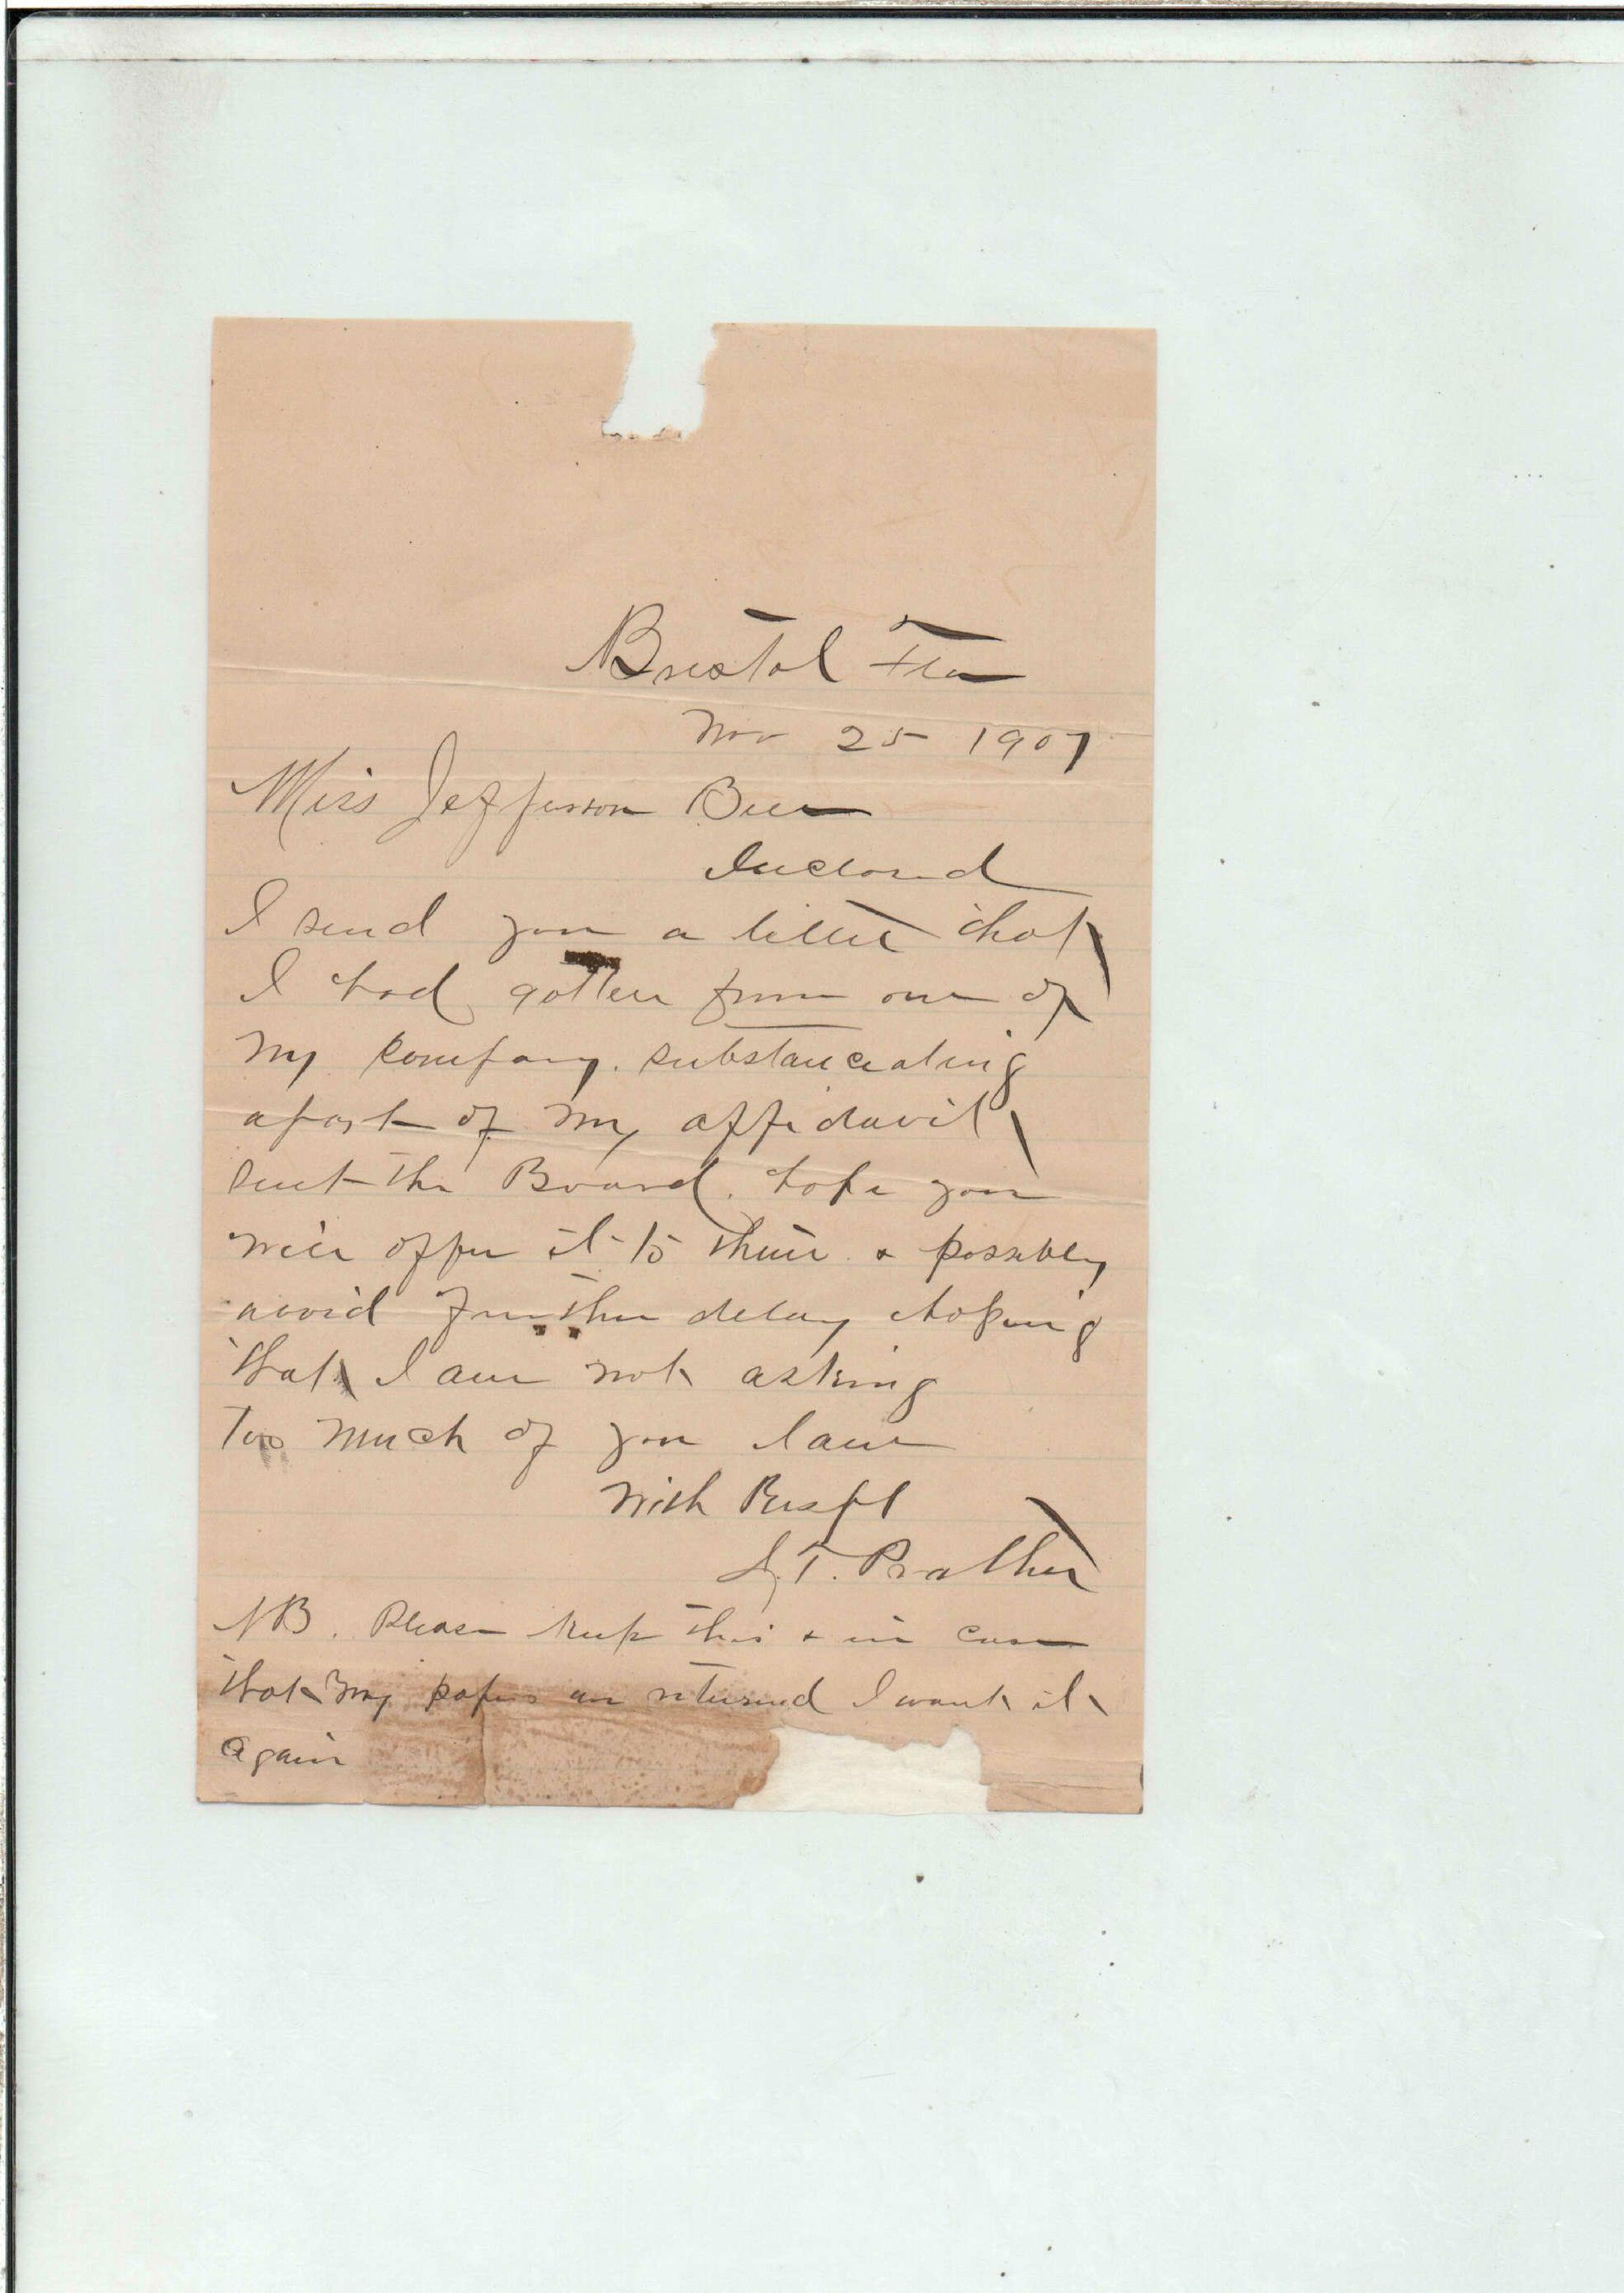 Bristol Fla
Nov 25 1907
Miss Jefferson Bell
Inclosed
I send you a letter that
I had gotten from one of
my company. substanceating
apart of my affidavit
sent the Board. hope you
will offer it to them & possibly
avoid further delay hoping
that I am not asking
too much of you I am
With Respt
T. Prather
NB. Please keep this & in case
that my papers are returned I want it
again